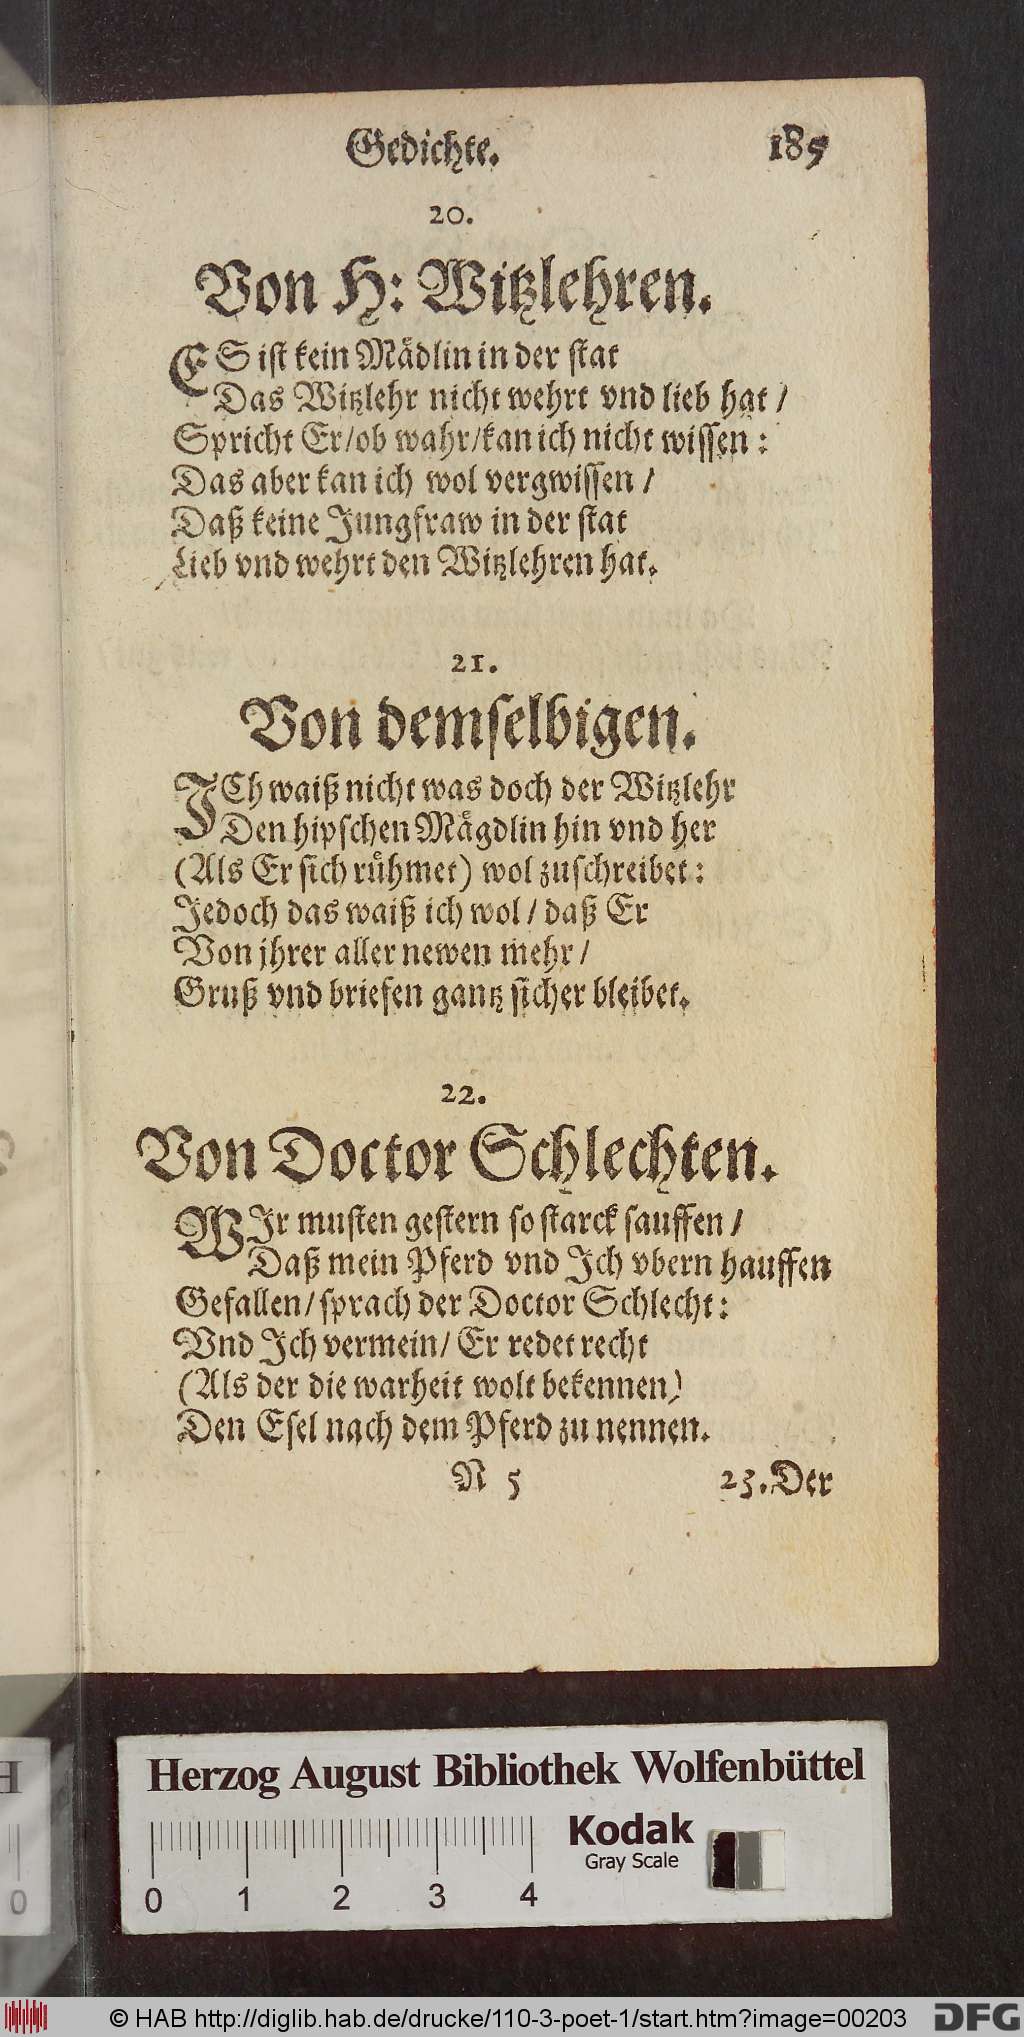 Gedichte. 185
20.
Von H: Witzlehren.
ES ist kein Mädlin in der stat
Das Witzlehr nicht wehrt vnd lieb hat /
Spricht Er/ob wahr/kan ich nicht wissen:
Das aber kan ich wol vergwissen /
Daß keine Jungfraw in der stat
Lieb vnd wehrt den Witzlehren hat.
21.
Von demselbigen.
JCh waiß nicht was doch der Witzlehr
Den hipschen Mägdlin hin vnd her
(Als Er sich rühmet) wol zuschreibet:
Jedoch das waiß ich wol / daß Er
Von jhrer aller newen mehr /
Gruß vnd briefen gantz sicher bleibet.
22.
Von Doctor Schlechten.
WJr musten gestern so starck sauffen /
Daß mein Pferd vnd Jch vbern hauffen
Gefallen/ sprach der Doctor Schlecht:
Vnd Jch vermein/ Er redet recht
(Als der die warheit wolt bekennen)
Den Esel nach dem Pferd zu nennen.
N 5 23. Der
Herzog August Bibliothek Wolfenbüttel
Kodak
Gray Scale
0 1 2 3 4
H
0
© HAB http://diglib.hab.de/drucke/110-3-poet-1/start.htm?image=00203
DFG